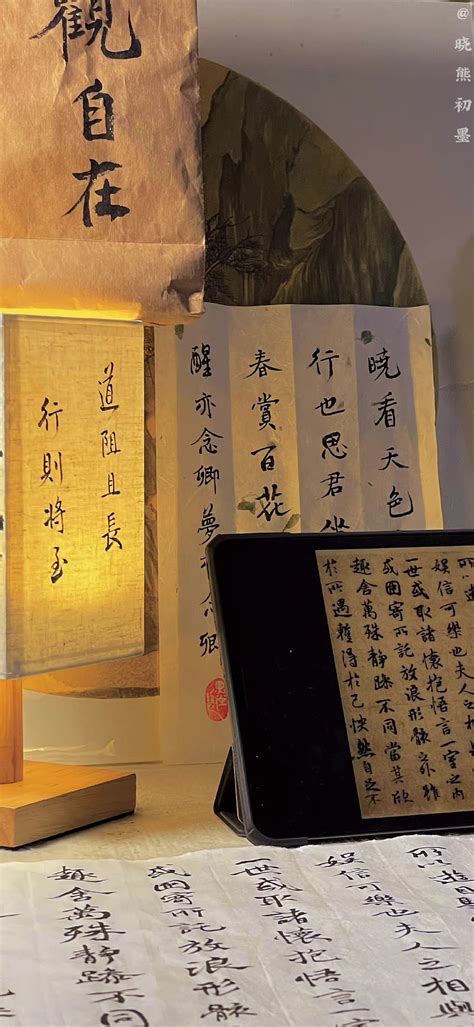 @晓熊初墨
觀自在
道阻且長
行則將至
曉看天色
行也思君坐
春賞百花
醒亦念卿夢亦念卿
娛信可樂也夫人之相與
一世或取諸懷抱悟言一室之內
或因寄所託放浪形骸之外雖
趣舍萬殊靜躁不同當其欣
於所遇輒得於己怏然自足不
所以遊目
娛信可樂也夫人之相與
一世或取諸懷抱悟言一
或因寄所託放浪形骸
趣舍萬殊靜躁不同